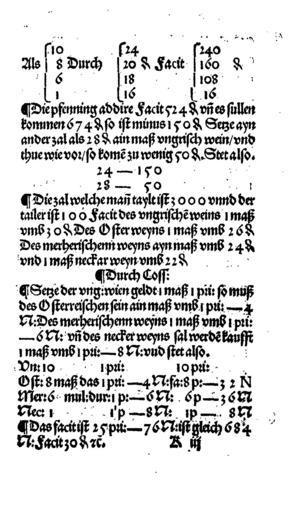 10 24 240
Als 8 Durch 20 ₰ Facit 160 ₰
6 18 108
1 16 16
¶Die pfenning addire Facit 524 ₰ vñ es sullen
kommen 674 ₰ so ist minus 150 ₰ Setze ayn
ander zal als 28 ₰ ain maß vngrisch wein/vnd
thue wie vor/so komẽ zu wenig 50 ₰. Stet also.
24 — 150
28 — 50
¶Die zal welche mañ taylt ist 3000 vnnd der
tailer ist 100 Facit des vngrischẽ weins 1 maß
vmb 30 ₰ Des Osterweyns 1 maß vmb 26 ₰
Des merherischenn weyns ayn maß vmb 24 ₰
vnd 1 maß neckar weyn vmb 22 ₰
¶Durch Coss:
¶Setze der vng: wien geldt 1 maß 1 pri: so muß
des Osterreischen sein ain maß vmb 1 pri: — 4
N: Des merherischenn weyns 1 maß vmb 1 pri:
— 6 N: vñ des necker weyns sal werdẽ kaufft
1 maß vmb 1 pri: — 8 N: vnd stet also.
Vn: 10 1 pri: 10 pri:
Ost: 8 maß das 1 pri: — 4 N: fa: 8 p: — 32 N
Mer: 6 mul: dur: 1 p: — 6 N: 6 p — 36 N
Nec: 1 1 p — 8 N: 1 p — 8 N
¶Das facit ist 25 pri: — 76 N: ist gleich 684
N: Facit 30 ₰ ꝛc. K iij